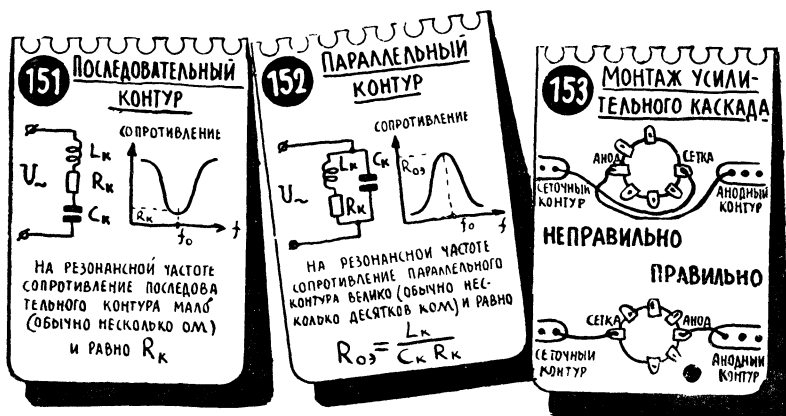 151 ПОСЛЕДОВАТЕЛЬНЫЙ
КОНТУР
U~
Lк
Rк
Cк
СОПРОТИВЛЕНИЕ
Rк
f₀
f
НА РЕЗОНАНСНОЙ ЧАСТОТЕ
СОПРОТИВЛЕНИЕ ПОСЛЕДОВА
ТЕЛЬНОГО КОНТУРА МАЛО
(ОБЫЧНО НЕСКОЛЬКО ОМ)
И РАВНО Rк
152 ПАРАЛЛЕЛЬНЫЙ
КОНТУР
U~
Lк
Cк
Rк
СОПРОТИВЛЕНИЕ
Rоэ
f₀
f
НА РЕЗОНАНСНОЙ ЧАСТОТЕ
СОПРОТИВЛЕНИЕ ПАРАЛЛЕЛЬНОГО
КОНТУРА ВЕЛИКО (ОБЫЧНО НЕС-
КОЛЬКО ДЕСЯТКОВ КОМ) И РАВНО
Rоэ = Lк / Cк Rк
153 МОНТАЖ УСИЛИ-
ТЕЛЬНОГО КАСКАДА
АНОД
СЕТКА
СЕТОЧНЫЙ
КОНТУР
АНОДНЫЙ
КОНТУР
НЕПРАВИЛЬНО
ПРАВИЛЬНО
СЕТКА
АНОД
СЕТОЧНЫЙ
КОНТУР
АНОДНЫЙ
КОНТУР